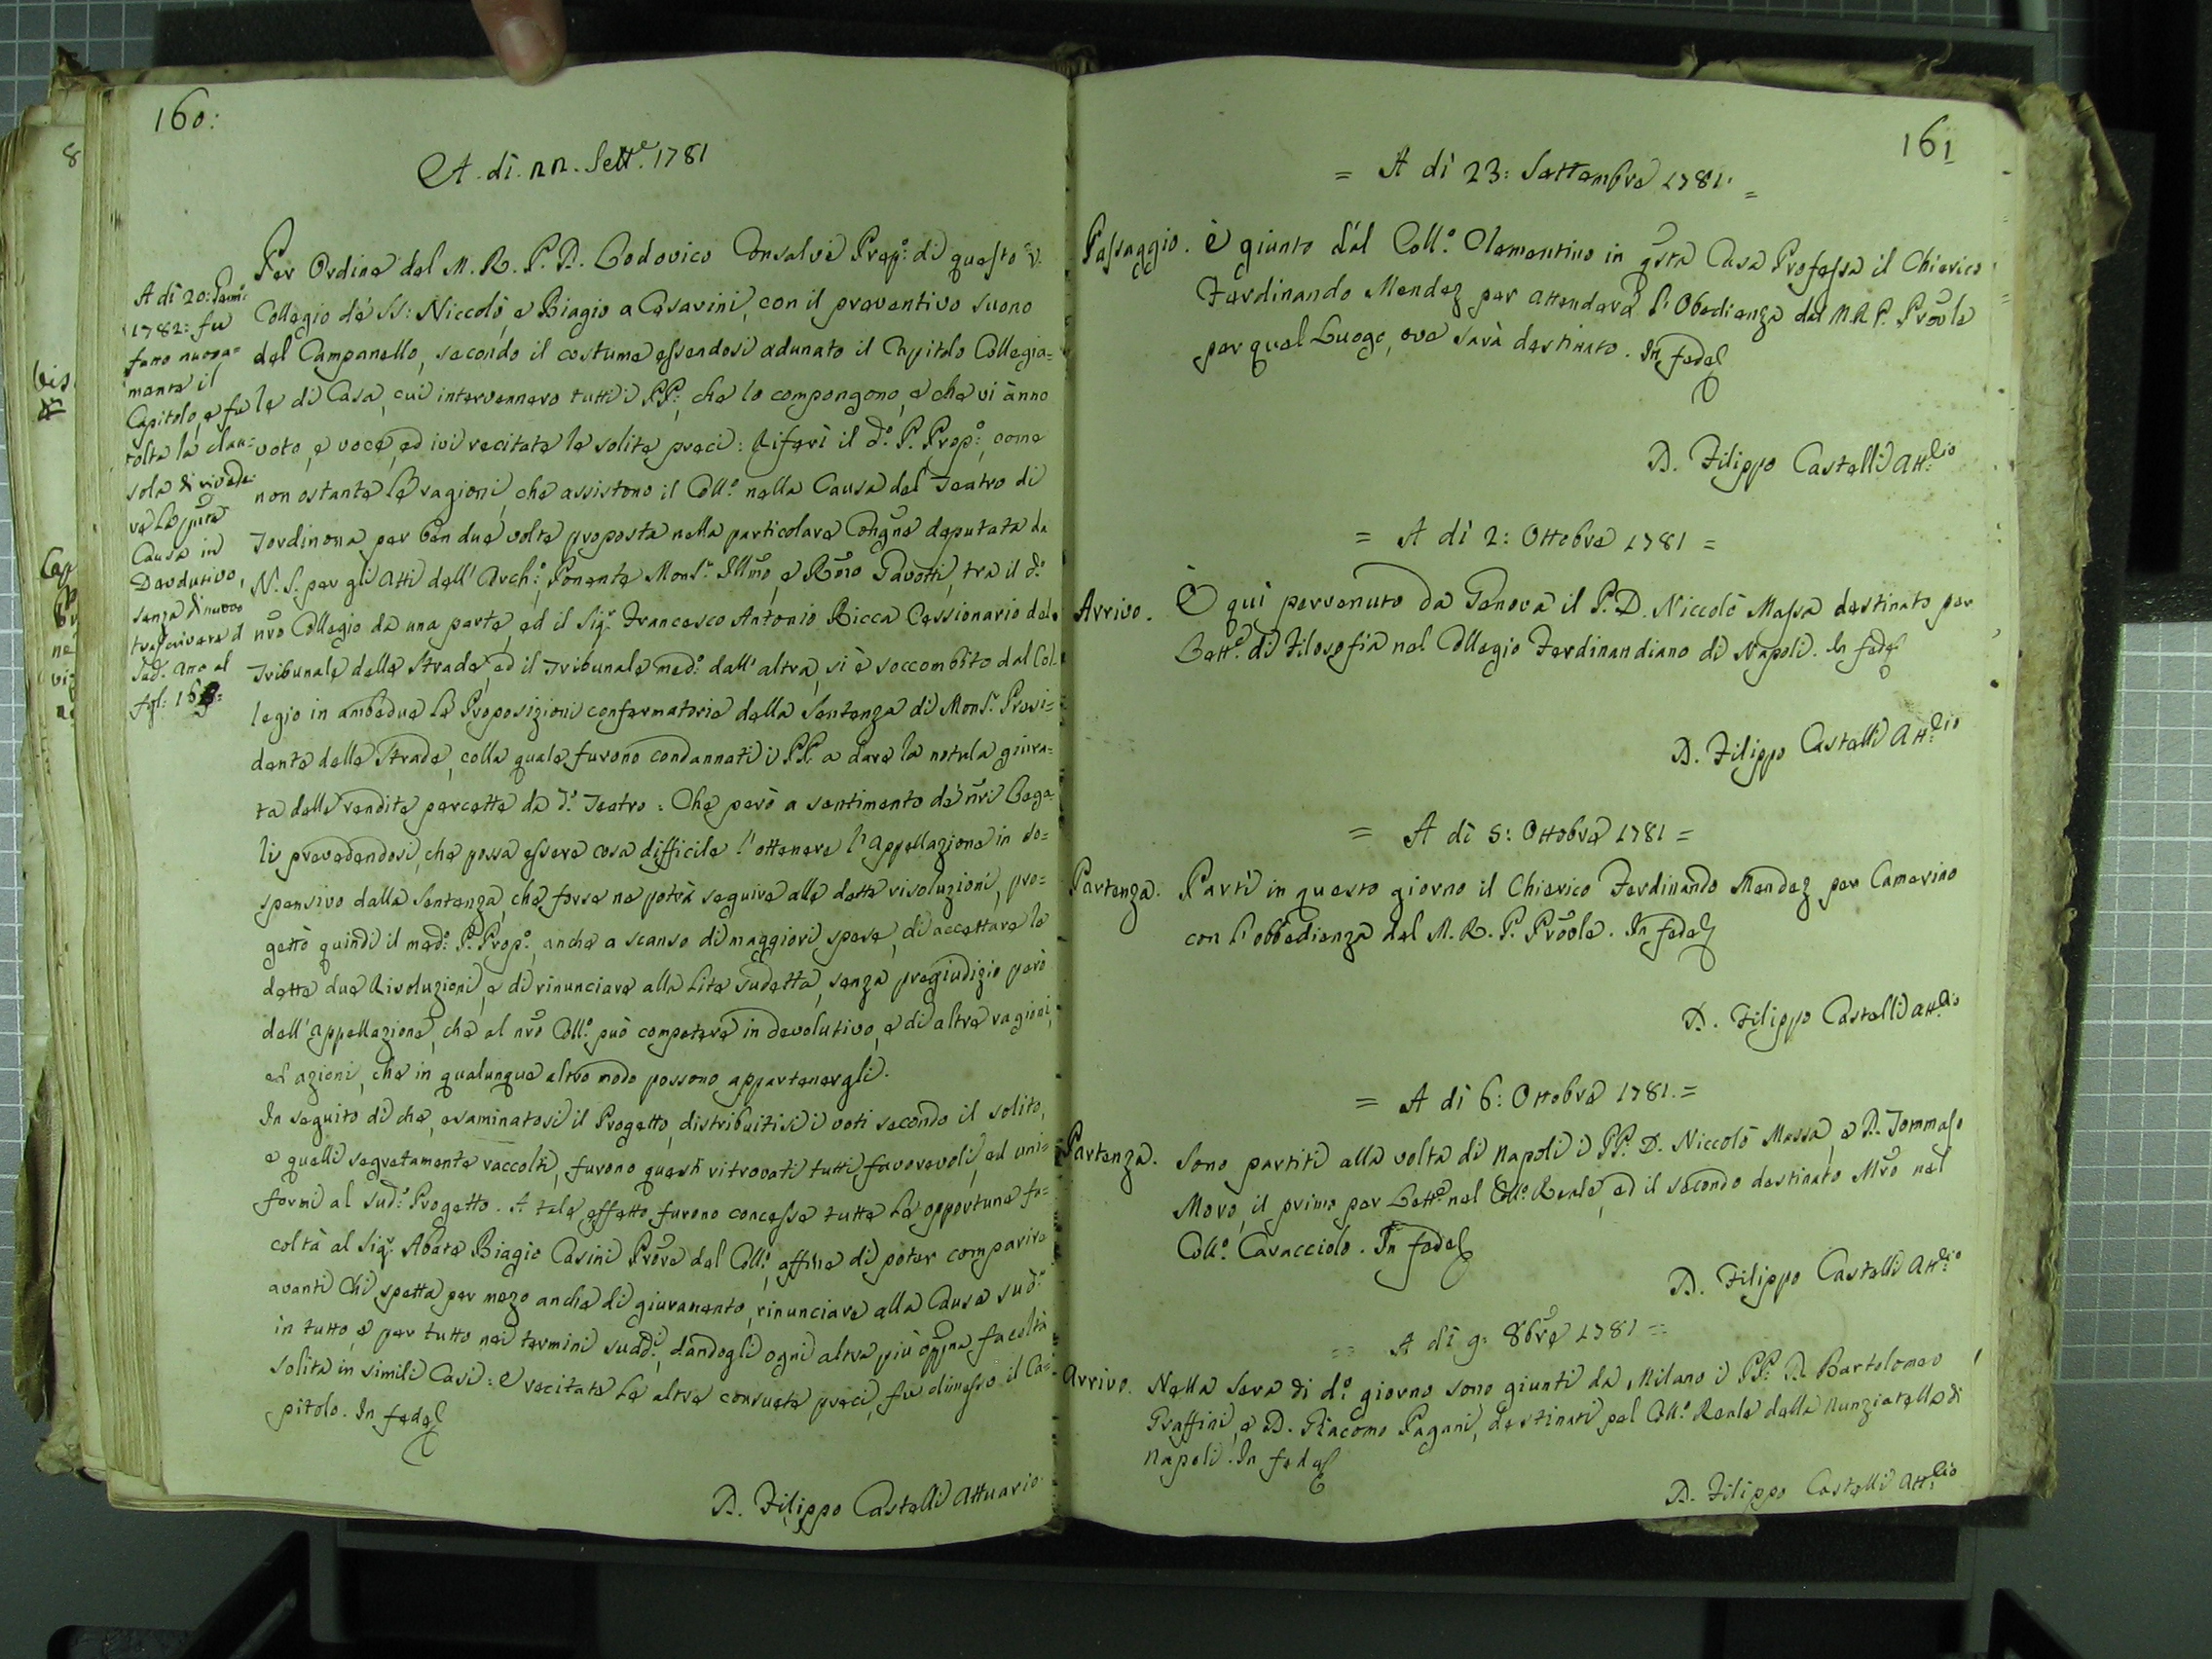 160:
A. di. 22. Sett.e 1781
Per Ordine del M. R. P. D. Lodovico Consalvi Prep.o di questo V.
Collegio de' SS: Niccolò, e Biagio a Cesarini, con il preventivo suono
del Campanello, secondo il costume essendosi adunato il Capitolo Collegia=
le di Casa, cui intervennero tutti i PP:, che lo compongono, e che vi ànno
voto, e voce, ed ivi recitate le solite preci: Riferì il d.o P. Prep.o, come
non ostante le ragioni, che assistono il Coll.o nella Causa del Teatro di
Tordinona per ben due volte proposta nella particolare Congne deputata da
N. S. per gli Atti dell' Arch:, Ponente Mons.r Illmo, e Rmo Pavotti, tra il d.o
nro Collegio da una parte, ed il Sig.r Francesco Antonio Ricca Cessionario del
Tribunale delle Strade, ed il Tribunale med.o dall' altra, si è soccombito dal Col=
legio in ambedue le Proposizioni confermatorie della Sentenza di Mons.r Presi=
dente delle Strade, colla quale furono condannati i PP. a dare la notula giura=
ta delle rendite percette da d.o Teatro: Che però a sentimento de' nri Lega=
li prevedendosi, che possa essere cosa difficile l' ottenere l' Appellazione in so=
spensivo dalla Sentenza, che forse ne potrà seguire alle dette risoluzioni, pro=
gettò quindi il med.o P. Prep.o, anche a scanso di maggiori spese, di accettare le
dette due Risoluzioni, e di rinunciare alla Lite sudetta, senza pregiudizio però
dell' Appellazione, che al nro Coll.o può competere in devolutivo, e di altre ragioni,
ed azioni, che in qualunque altro modo possono appartenergli.
In seguito di che, esaminatosi il Progetto, distribuitisi i voti secondo il solito,
e quelli segretamente raccolti, furono questi ritrovati tutti favorevoli, ed uni=
formi al sud.o Progetto. A tale effetto furono concesse tutte le opportune fa=
coltà al Sig.r Abate Biagio Casini Prore del Coll.o, affine di poter comparire
avanti chi spetta per mezo anche di giuramento, rinunciare alla Causa sud.a
in tutto, e per tutto nei termini sudd.i, dandogli ogni altra più oppna facoltà
solita in simili Casi: e recitate le altre consuete preci, fu dimesso il Ca=
pitolo. In fede
D. Filippo Castelli Attuario
A di 20:
1782: fu
fatto nuova=
mente il
Capitolo, e fu
tolta la clau=
sola di rivede=
re la
Causa in
Devolutivo,
senza di nuovo
trascrivere il
161
= A di 23: Settembre 1781. =
Passaggio. è giunto dal Coll.o Clementino in qsta Casa Professa il Chierico
Ferdinando Mendez per attendere l' Obedienza del M.R.P. Prople
per quel Luogo, ove sarà destinato. In fede
D. Filippo Castelli Att.rio
= A di 2: Ottobre 1781 =
Arrivo. È qui pervenuto da Genova il P. D. Niccolò Massa destinato per
Lett.e di Filosofia nel Collegio Ferdinandiano di Napoli. In fede
D. Filippo Castelli Att.rio
= A di 5: Ottobre 1781 =
Partenza. Partì in questo giorno il Chierico Ferdinando Mendez per Camerino
con l' obbedienza del M. R. P. Prople. In fede
D. Filippo Castelli Att.rio
= A di 6: Ottobre 1781. =
Partenza. Sono partiti alla volta di Napoli i PP. D. Niccolò Massa, e D. Tommaso
Moro, il primo per Lett.e nel Coll.o Reale, ed il secondo destinato Mro nel
Coll.o Caracciolo. In fede
D. Filippo Castelli Att.rio
= A di 9: 8bre 1781 =
Arrivo. Nella sera di d.o giorno sono giunti da Milano i PP. D. Bartolomeo
Graffini, e D. Giacomo Pagani, destinati pel Coll.o Reale della Nunziatella di
Napoli. In fede
D. Filippo Castelli Att.rio